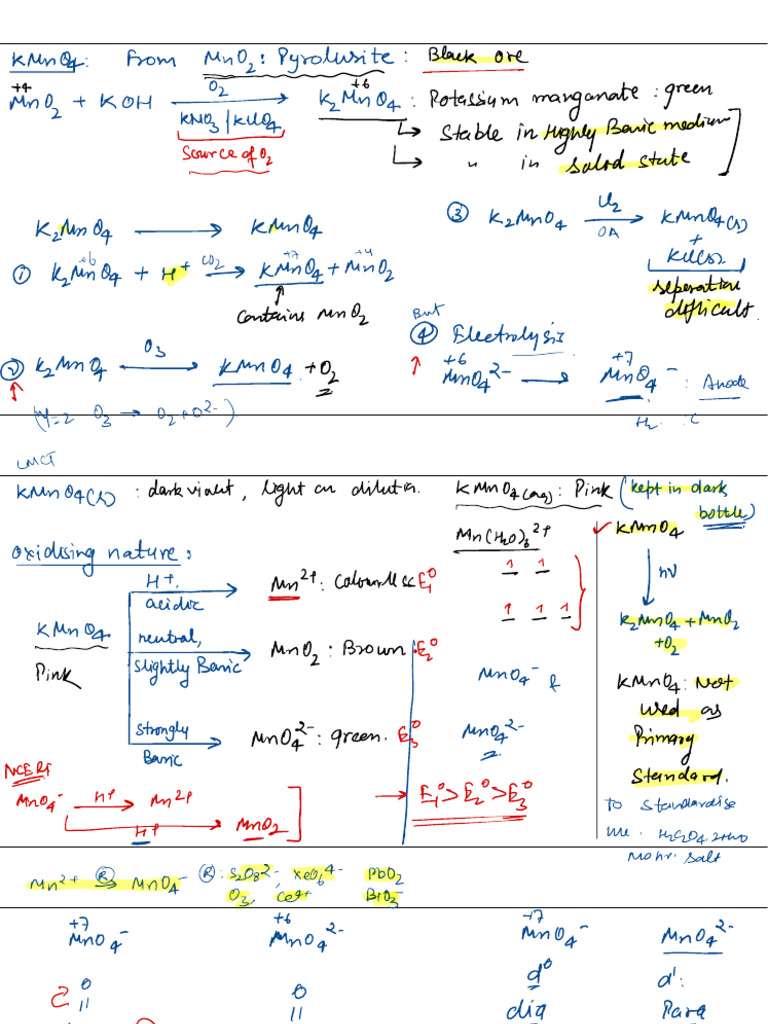 KMnO4: From MnO2: Pyrolusite: Black ore
+4 +6
MnO2 + KOH O2 → K2MnO4: Potassium manganate: green
KNO3/KClO4
Source of O2
↳ Stable in Highly Basic medium
↳ " in solid state
K2MnO4 → KMnO4
+6 +7 +4
① K2MnO4 + H+ CO2 → KMnO4 + MnO2
↑
Contains MnO2
② K2MnO4 O3 → KMnO4 + O2
(Y=2 O3 → O2 + O2-)
③ K2MnO4 Cl2 → KMnO4(s)
OA
+
KCl(s)
seperation
difficult.
But
④ Electrolysis
+6 +7
MnO4 2- → MnO4-: Anode
H2 : C
LMCT
KMnO4(s): dark violet, light on dilution.
KMnO4(aq): Pink (kept in dark
bottle)
oxidising nature:
KMnO4
Pink
H+,
acidic → Mn2+: Colourless E1°
neutral,
slightly Basic → MnO2: Brown. E2°
strongly
Basic → MnO4 2-: green. E3°
NCERT
MnO4- H+ → Mn2+
H+ → MnO2
Mn(H2O)6 2+
1 1
1 1 1
MnO4- &
MnO4 2-
→ E1° > E2° > E3°
✓ KMnO4
↓ hν
K2MnO4 + MnO2
+O2
KMnO4: Not
used as
Primary
Standard.
To standardise
use: H2C2O4.2H2O
Mohr. Salt
Mn2+ Ⓡ → MnO4- Ⓡ: S2O8 2-, XeO6 4- PbO2
O3, Ce4+ BiO3-
+7 +6 +7
MnO4- MnO4 2- MnO4- MnO4 2-
d0 d1:
O O dia Para
|| ||